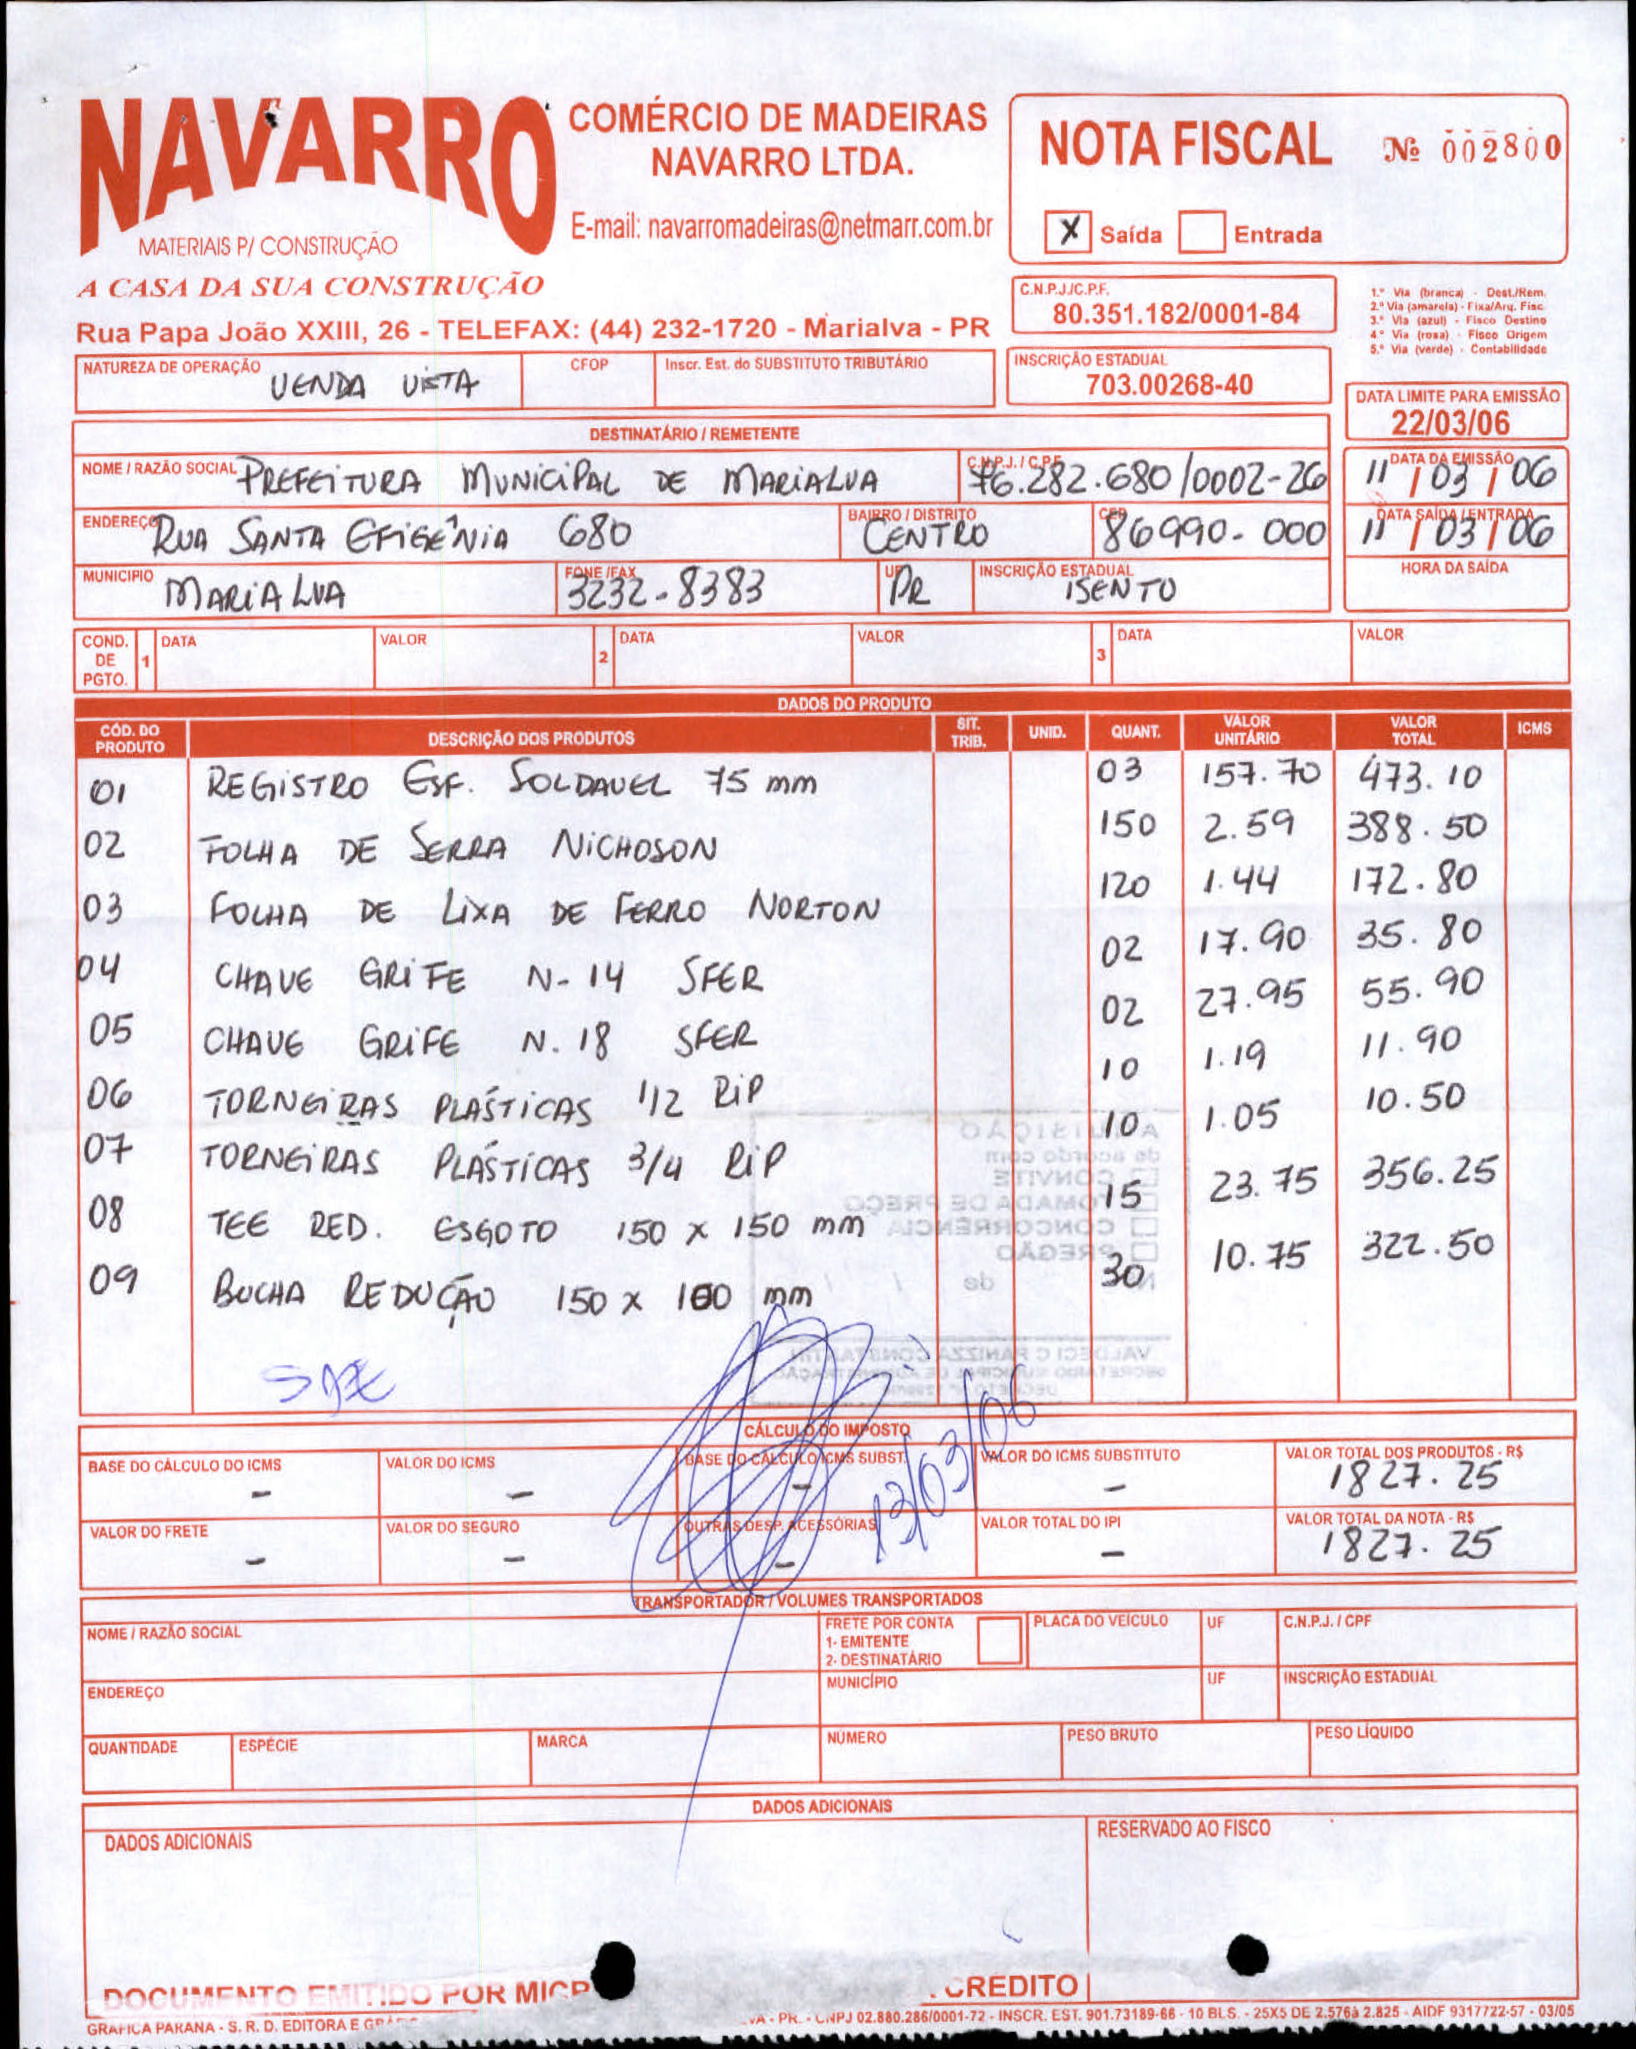 NAVARRO
MATERIAIS P/ CONSTRUÇÃO
A CASA DA SUA CONSTRUÇÃO
COMÉRCIO DE MADEIRAS
NAVARRO LTDA.
E-mail: navarromadeiras@netmarr.com.br
Rua Papa João XXIII, 26 - TELEFAX: (44) 232-1720 - Marialva - PR
NOTA FISCAL Nº 002800
X Saída Entrada
C.N.P.J./C.P.F.
80.351.182/0001-84
1.ª Via (branca) - Dest./Rem.
2.ª Via (amarela) - Fixa/Arq. Fisc.
3.ª Via (azul) - Fisco Destino
4.ª Via (rosa) - Fisco Origem
5.ª Via (verde) - Contabilidade
NATUREZA DE OPERAÇÃO VENDA VISTA CFOP Inscr. Est. do SUBSTITUTO TRIBUTÁRIO
INSCRIÇÃO ESTADUAL
703.00268-40
DATA LIMITE PARA EMISSÃO
22/03/06
DESTINATÁRIO / REMETENTE
NOME / RAZÃO SOCIAL PREFEITURA MUNICIPAL DE MARIALVA C.N.P.J. / C.P.F. 76.282.680/0002-26
DATA DA EMISSÃO 11/03/06
ENDEREÇO RUA SANTA EFIGÊNIA 680 BAIRRO / DISTRITO CENTRO CEP 86990-000
DATA SAÍDA / ENTRADA 11/03/06
MUNICIPIO MARIALVA FONE/FAX 3232-8383 UF PR INSCRIÇÃO ESTADUAL ISENTO
HORA DA SAÍDA
COND. DE PGTO. 1 DATA VALOR 2 DATA VALOR 3 DATA VALOR
DADOS DO PRODUTO
CÓD. DO PRODUTO DESCRIÇÃO DOS PRODUTOS SIT. TRIB. UNID. QUANT. VALOR UNITÁRIO VALOR TOTAL ICMS
01 REGISTRO ESF. SOLDAVEL 75 mm 03 157.70 473.10
02 FOLHA DE SERRA NICHOSON 150 2.59 388.50
03 FOLHA DE LIXA DE FERRO NORTON 120 1.44 172.80
04 CHAVE GRIFE N-14 SFER 02 17.90 35.80
05 CHAVE GRIFE N.18 SFER 02 27.95 55.90
06 TORNEIRAS PLÁSTICAS 1/2 RIP 10 1.19 11.90
07 TORNEIRAS PLÁSTICAS 3/4 RIP 10 1.05 10.50
08 TEE RED. ESGOTO 150 x 150 mm 15 23.75 356.25
09 BUCHA REDUÇÃO 150 x 100 mm 30 10.75 322.50
AQUISIÇÃO
de acordo com
CONVITE
TOMADA DE PREÇO
CONCORRÊNCIA
PREGÃO
Nº de / /
13/03/06
CÁLCULO DO IMPOSTO
BASE DO CÁLCULO DO ICMS - VALOR DO ICMS - BASE DO CÁLCULO ICMS SUBST. - VALOR DO ICMS SUBSTITUTO - VALOR TOTAL DOS PRODUTOS - R$ 1827.25
VALOR DO FRETE - VALOR DO SEGURO - OUTRAS DESP. ACESSÓRIAS - VALOR TOTAL DO IPI - VALOR TOTAL DA NOTA - R$ 1827.25
TRANSPORTADOR / VOLUMES TRANSPORTADOS
NOME / RAZÃO SOCIAL FRETE POR CONTA 1- EMITENTE 2- DESTINATÁRIO PLACA DO VEÍCULO UF C.N.P.J. / CPF
ENDEREÇO MUNICÍPIO UF INSCRIÇÃO ESTADUAL
QUANTIDADE ESPÉCIE MARCA NÚMERO PESO BRUTO PESO LÍQUIDO
DADOS ADICIONAIS
DADOS ADICIONAIS RESERVADO AO FISCO
DOCUMENTO EMITIDO POR MICR CREDITO
GRAFICA PARANA - S. R. D. EDITORA E - PR. - CNPJ 02.880.286/0001-72 - INSCR. EST. 901.73189-66 - 10 BLS. - 25X5 DE 2.576 à 2.825 - AIDF 9317722-57 - 03/05